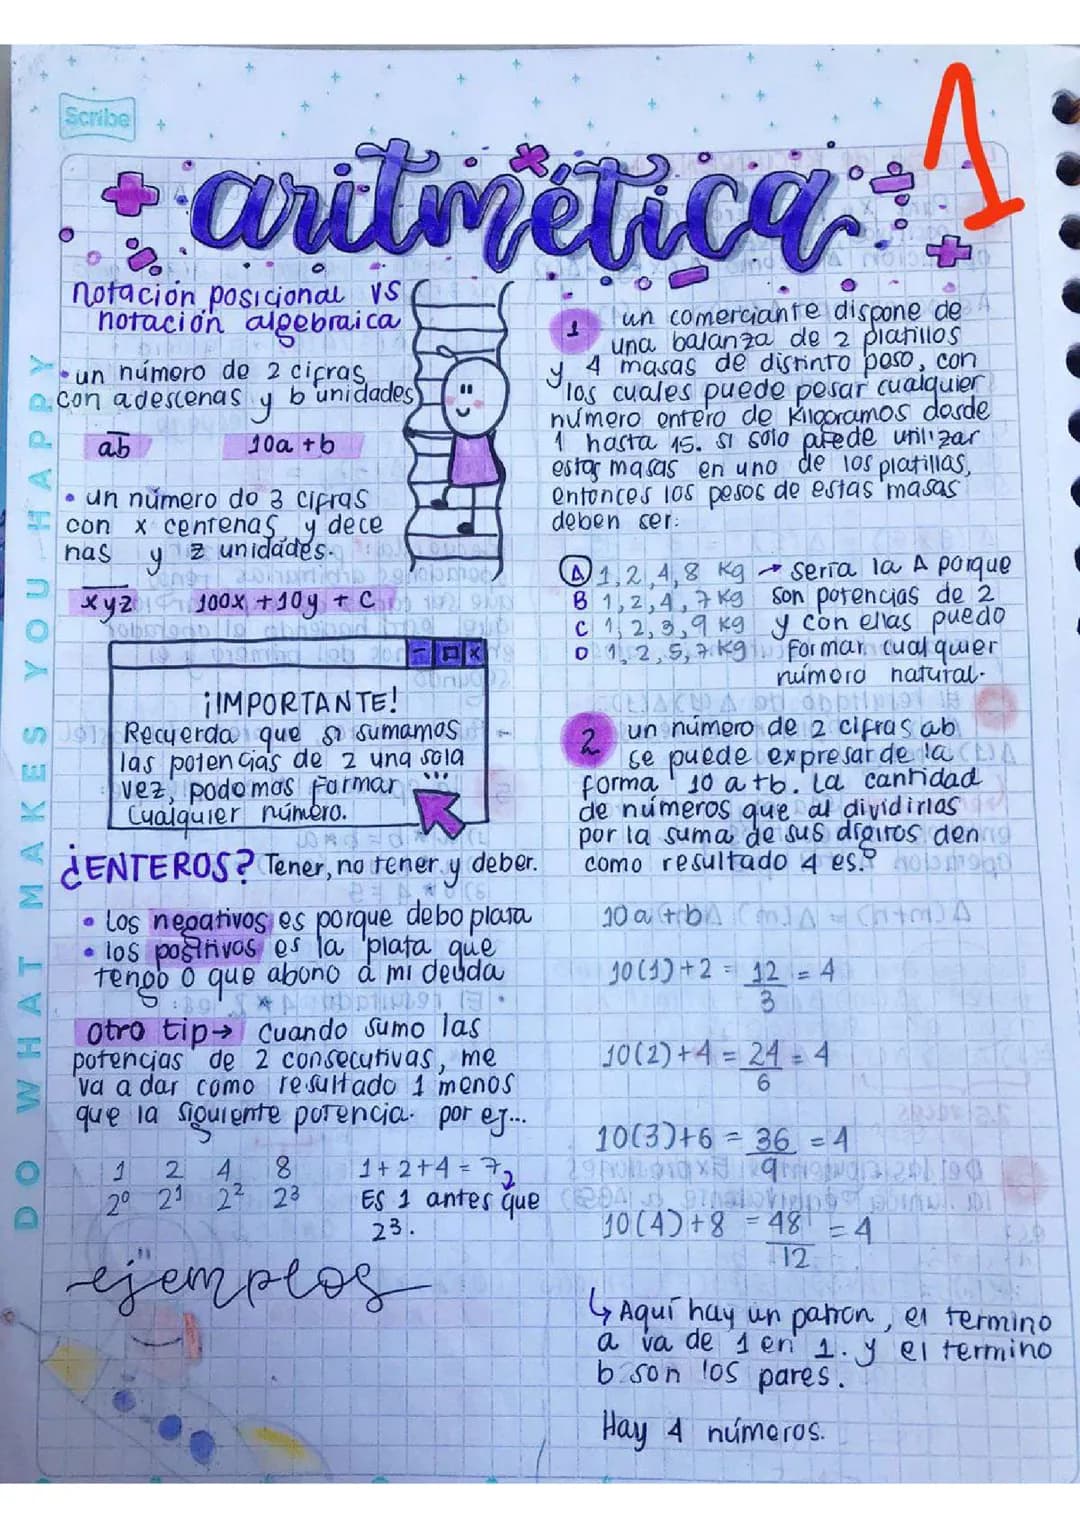 Scribe
1
aritmética
DO WHAT MAKES YOU HAPPY
notación posicional vs
notación algebraica
• un número de 2 cifras
con a descenas y b unidades
ab
10a + b
• un número de 3 cifras
con x centenas y dece
nas y z unidades.
xyz
100x + 10y + c
¡IMPORTANTE!
Recuerda que si sumamos
las potencias de 2 una sola
vez, podemos formar
cualquier número.
¿ENTEROS? Tener, no tener y deber.
• Los negativos es porque debo plata
• los positivos es la plata que
tengo o que abono a mi deuda
otro tip→ cuando sumo las
potencias de 2 consecutivas, me
va a dar como resultado 1 menos
que la siguiente potencia. por ej...
1 2 4 8
2⁰ 2¹ 2² 2³
1+2+4 = 7,
Es 1 antes que
2³.
ejemplos
1 un comerciante dispone de
una balanza de 2 platillos
y 4 masas de distinto peso, con
los cuales puede pesar cualquier
número entero de kilogramos desde
1 hasta 15. si solo puede utilizar
estas masas en uno de los platillas,
entonces los pesos de estas masas
deben ser:
A 1,2,4,8 Kg → sería la A porque
B 1,2,4,7 Kg son potencias de 2
C 1,2,3,9 Kg y con ellas puedo
D 1,2,5,7 Kg formar cualquier
número natural.
2 un número de 2 cifras ab
se puede expresar de la
forma 10 a + b. La cantidad
de números que al dividirlas
por la suma de sus digitos den
como resultado 4 es?
10 a + b
10(1)+2 = 12 = 4
3
10(2)+4 = 24 = 4
6
10(3)+6 = 36 = 4
9
10(4)+8 = 48 = 4
12
↳ Aquí hay un patron, el termino
a va de 1 en 1. y el termino
b son los pares.
Hay 4 números.